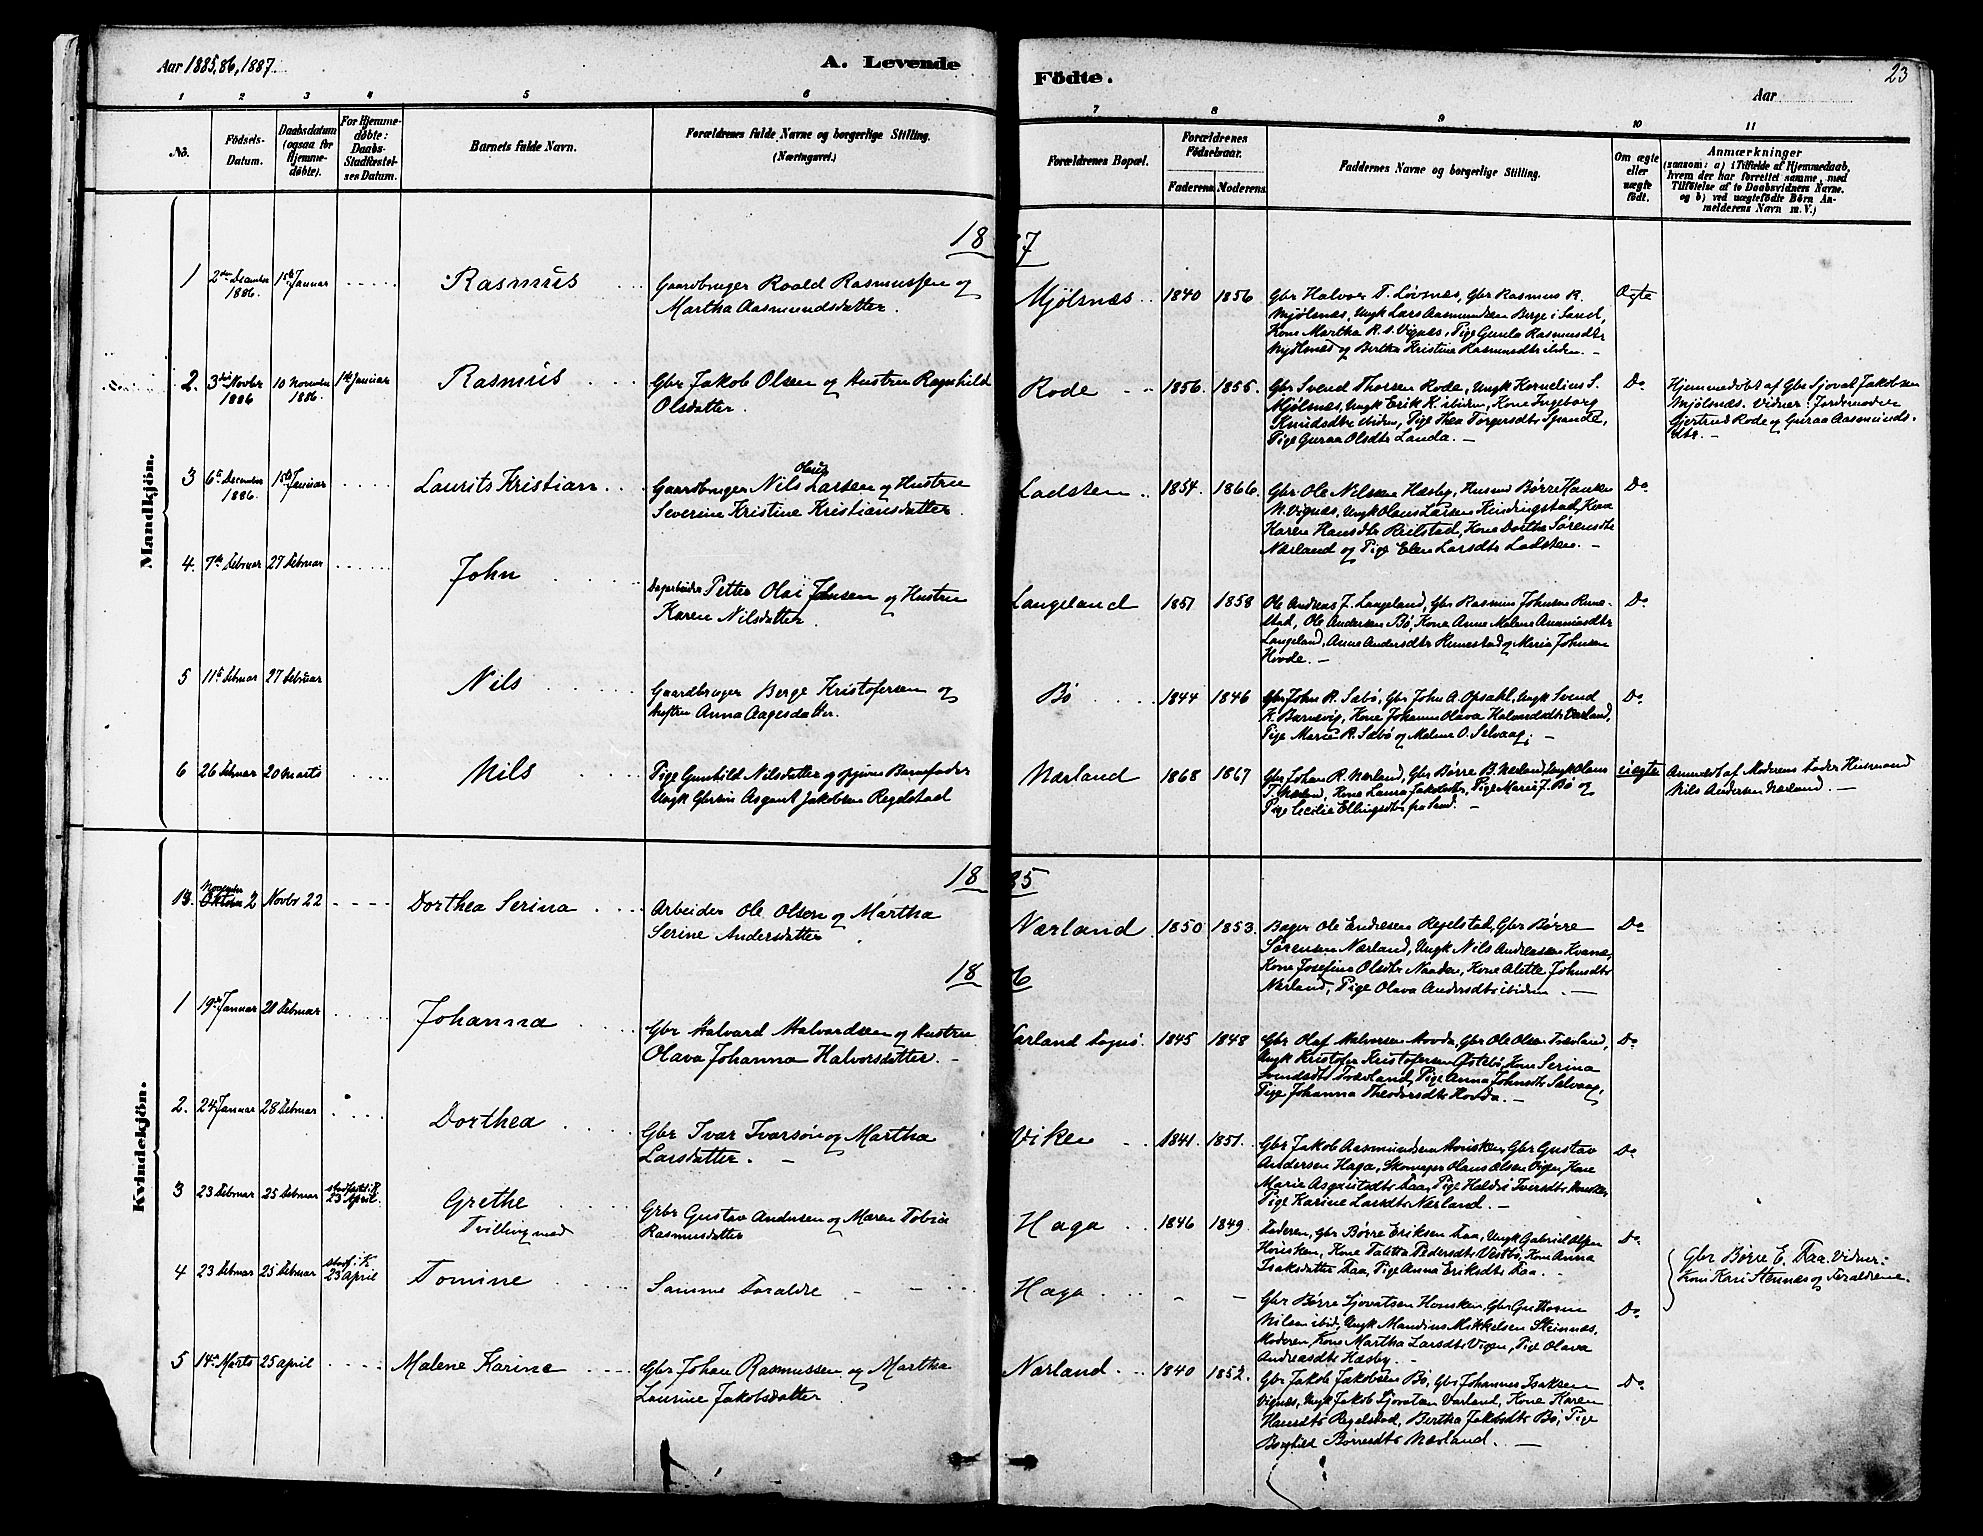 Aar 1885, 86, 1887.
A. Levende
Födte.
23
Aar
1 2 3 4 5 6 7 8 9 10 11
No.
Födsels-
Datum.
Daabsdatum
(ogsaa for
Hjemme-
döbte).
For Hjemme-
döbte:
Daabs-
Stadfæstel-
ses Datum.
Barnets fulde Navn.
Forældrenes fulde Navne og borgerlige Stilling.
(Næringsvei.)
Forældrenes Bopæl.
Forældrenes
Födselsaar.
Faderens Moderens
Faddernes Navne og borgerlige Stilling.
Om ægte
eller
uægte
födt.
Anmærkninger
(saasom: a) i Tilfælde af Hjemmedaab,
hvem der har forrettet samme, med
Tilföielse af to Daabsvidners Navne.
og b) ved uægtefödte Börn An-
melderens Navn m. V.)
Mandkjön.
18 7
1 2den December 1886. 1ste Januar
Rasmus
Gaardbruger Roald Rasmussen og
Martha Aasmundsdatter.
Mjölsnæs 1840 1856
Gbr Halvor T. Lövsnæs, Gbr Rasmus R.
Mjölsnæs, Ungk Lars Aasmundsen Berge i Sand,
Kone Martha R. s. Vignæs, Pige Gunla Rasmusdtr
Mjölsnæs og Bertha Kristine Rasmusdtr ibiden. –
Ægte
2. 3die Novbr 1886 10 November 1886. 1ste Januar
Rasmus
Gbr Jakob Olsen og Hustru Ragnhild
Olsdatter.
Rode 1856. 1855.
Gbr Svend Thorsen Rode, Ungk Kornelius S.
Mjölsnæs, Ungk Erik K. ibiden, Kone Ingeborg
Knudsdtr ibiden, Pige Thea Torgersdtr Spande,
Pige Guraa Olsdtr Landa. –
Do
Hjemmedöbt af Gbr Sjovat Jakobsen
Mjölsnæs. Vidner: Jordemoder
Gjertrud Rode og Guraa Aasmunds-
dtr. –
3 6te December 1886. 1ste Januar
Laurits Kristian
Gaardbruger Nils Olaus Larsen og Hustru
Severine Kristine Kristiansdatter.
Ladsten 1854. 1866.
Gbr Ole Nilssen Hæsby, Husmd Börre Hansen
N. Vignæs, Ungk Olaus Larsen Kindringstad, Kone
Karen Hansdtr Reilstad, Kone Dorthea Sörensdtr
Nærland og Pige Elen Larsdtr Ladsten. –
Do
4. 7de Februar 27 Februar
John
Dagarbeider Petter Olai Johnsen og Hustru
Karen Nilsdatter.
Langeland 1851 1858
Ole Andreas J. Langeland, Gbr Rasmus Johnsen Rune-
stad, Ole Andersen Bö, Kone Anne Malene Ananiasdtr
Langeland, Anne Andersdtr Runestad og Maria Johnsen
Hovde. –
Do
5 11te Februar 27 Februar
Nils
Gaardbruger Berge Kristofersen og
Hustru Anna Aagesdatter.
Bö 1844 1846
Gbr John R. Sæbö, Gbr John A. Opsahl, Ungk Svend
K. Barnevig, Kone Johanna Olava Halvorsdtr Varland,
Pige Marie R. Sæbö og Malene O. Selvaag. –
Do
6 26 Februar 20 Marts
Nils
Pige Gunhild Nilsdatter og opgiven Barnefader
Ungk Gjerlin Asgaut Jakobsen Regelstad
Nærland 1868 1867
Gbr Johan R. Nærland, Gbr Börre B. Nærland, Ungk Olaus
T. Nærland, Kone Laura Jakobsdtr, Pige Marie J. Bö og
Pige Cecilie Ellingsdtr fra Sand. –
Uægte
Anmeldt af Moderens Fader Husmand
Nils Andersen Nærland. –
Kvindekjön.
18 85
13. November 2 Novbr 22
Dorthea Serina
Arbeider Ole Olsen og Martha
Serine Andersdatter
Nærland 1850 1853.
Bager Ole Endresen Regelstad, Gbr Börre
Sörensen Nærland, Ungk Nils Andreassen Kvame,
Kone Josefine Olsdtr Naaden, Kone Alette Johnsdtr
Nærland, Pige Olava Andersdtr ibidem. –
Do
18 6
1 19de Januar 28 Februar
Johanna
Gbr Halvard Halvardsen og Hustru
Olava Johanna Halvorsdatter. –
Varland Sogns. 1845 1848
Gbr Olaf Halvorsen Hovda, Gbr Ole Olsen Tveland,
Ungk Kristofer Kristofersen Östebö, Kone Serina
Svendsdtr Tveland, Pige Anna Johnsdtr Selvaag,
Pige Johanna Theodorsdtr Hovda. –
Do
2. 24 Januar 28 Februar
Dorthea
Gbr Ivar Ivarsön og Martha
Larsdatter. –
Viken 1841. 1851.
Gbr Jakob Aasmundsen Honsken, Gbr Gustav
Andersen Haga, Skomager Olaus Olsen Vigen, Kone
Maria Asgautsdtr Faa, Pige Haldis Iversdtr Honsken,
Pige Karine Larsdtr Nærland. –
Do
3 23 Februar 25 Februar stadfæstet i K. 23 April.
Grethe
Tvilling med
Grbr Gustav Andersen og Maren Tobia
Rasmusdatter
Haga 1846 1849.
Faderen, Gbr Börre Eriksen Faa, Ungk Gabriel Olsen
Honsken, Kone Talitta Pedersdtr Vestbö, Kone Anna
Isaksdatter Faa, Pige Anna Eriksdtr Faa. –
Do
Gbr Börre E. Faa. Vidner:
Kone Kari Stennæs og Foraldrene.
4 23 Februar 25 Februar stadf. i K 23 April
Tomine
Samme Foraldre – –
Haga – –
Gbr Börre Sjovatsen Honsken, Gbr Guthorm
Nilsen ibid, Ungk Mandius Mikkelsen Steinnæs,
Moderen, Kone Martha Larsdtr Vigen, Pige Olava
Andreasdtr Hæsby. –
Do
5 14de Marts 25 April
Malene Karine
Gbr Johan Rasmussen og Martha
Laurine Jakobsdatter.
Nærland 1840 1852.
Gbr Jakob Jakobsen Bö, Gbr Johannes Isaksen
Vignæs, Ungk Jakob Sjovatsen Varland, Kone Karen
Hansdtr Regelstad, Bertha Jakobsdtr Bö, Pige
Borghild Börresdtr Nærland. –
Do